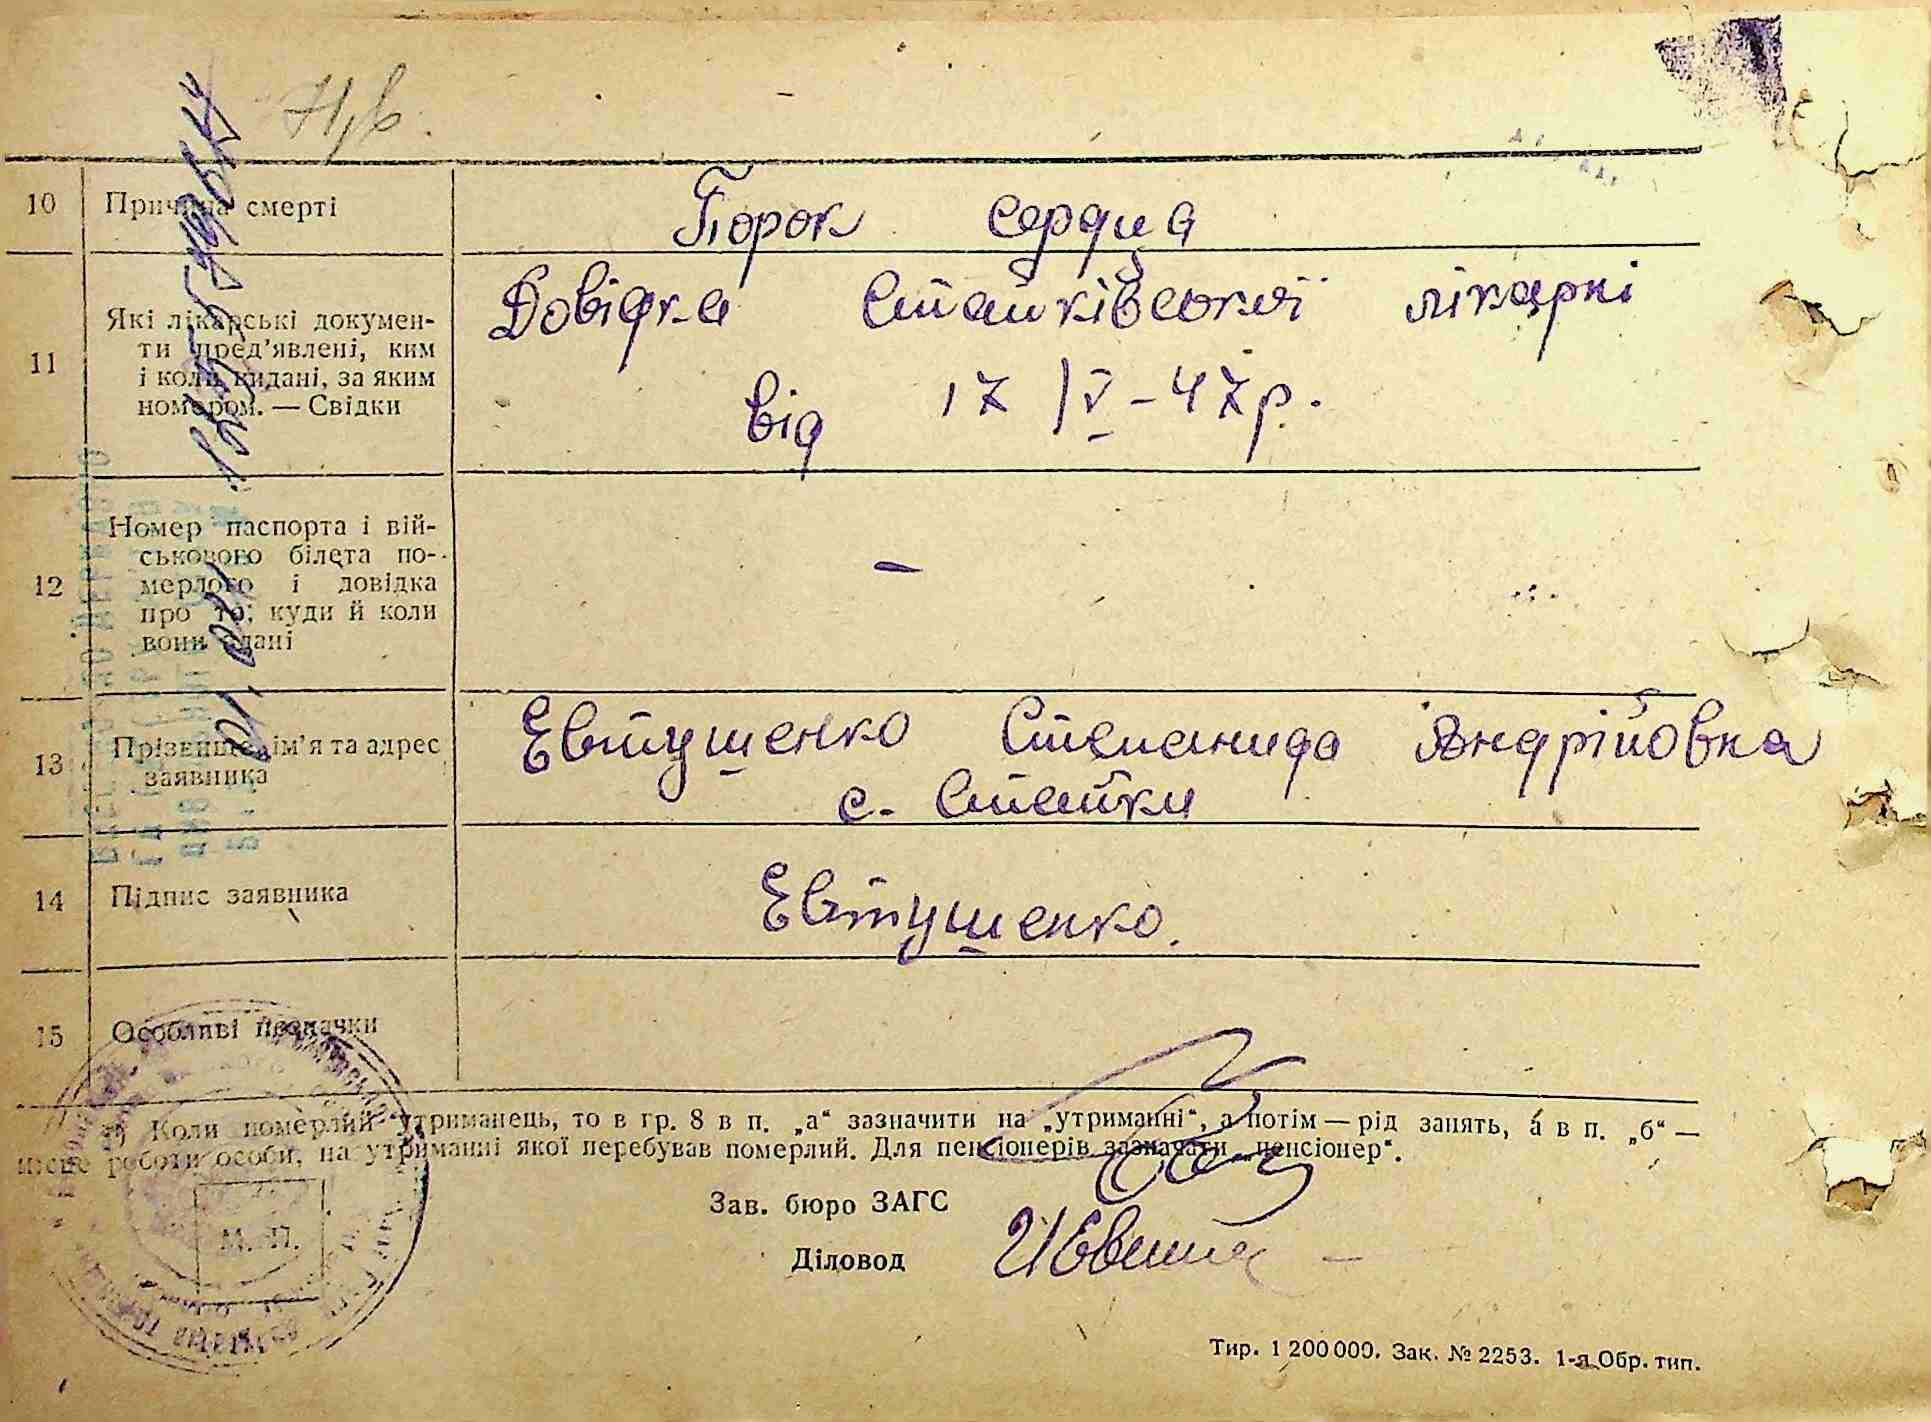 10 Причина смерті Порок сердца
11 Які лікарські докумен-
ти пред’явлені, ким
і коли видані, за яким
номером. — Свідки
Довідка Стайківської лікарні
від 17 IV - 47 р.
12 Номер паспорта і вій-
ськового білета по-
мерлого і довідка
про те, куди й коли
вони здані
–
13 Прізвище, ім’я та адрес
заявника
Евтушенко Степанида Андрійовна
с. Стайки
14 Підпис заявника Евтушенко.
15 Особливі позначки
*) Коли померлий утриманець, то в гр. 8 в п. „а“ зазначити на „утриманні“, а потім — рід занять, а в п. „б“ —
місце роботи особи, на утриманні якої перебував померлий. Для пенсіонерів зазначати „пенсіонер“.
Зав. бюро ЗАГС
Діловод
М. П.
Тир. 1 200 000. Зак. № 2253. 1-я Обр. тип.